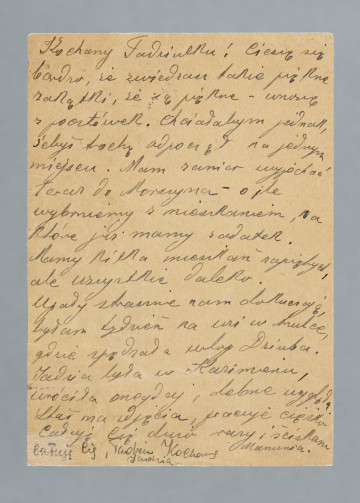 Kochany Tadziulku! Cieszę się
bardzo, że zwiedzasz takie piękne
zakątki, że są piękne - wnoszę
z pocztówek. Chciałabym jednak,
żebyś trochę odpoczął na jednym
miejscu. Mam zamiar wyjechać
teraz do Morszyna - o ile
wybrniemy z mieszkaniem, na
które już mamy zadatek.
Mamy kilka mieszkań
ale wszystkie daleko.
Upały strasznie nam dokuczają,
byłam tydzień na wsi w
gdzie
Jadzia była w Kazimierzu,
wróciła onegdaj, dobrze wygląda.
Staś ma zdjęcia, pracuje ciężko
Całuję Cię dużo razy i ściskam
Mamunia.
Całuję Cię, Tadziu Kochany
Jadzia